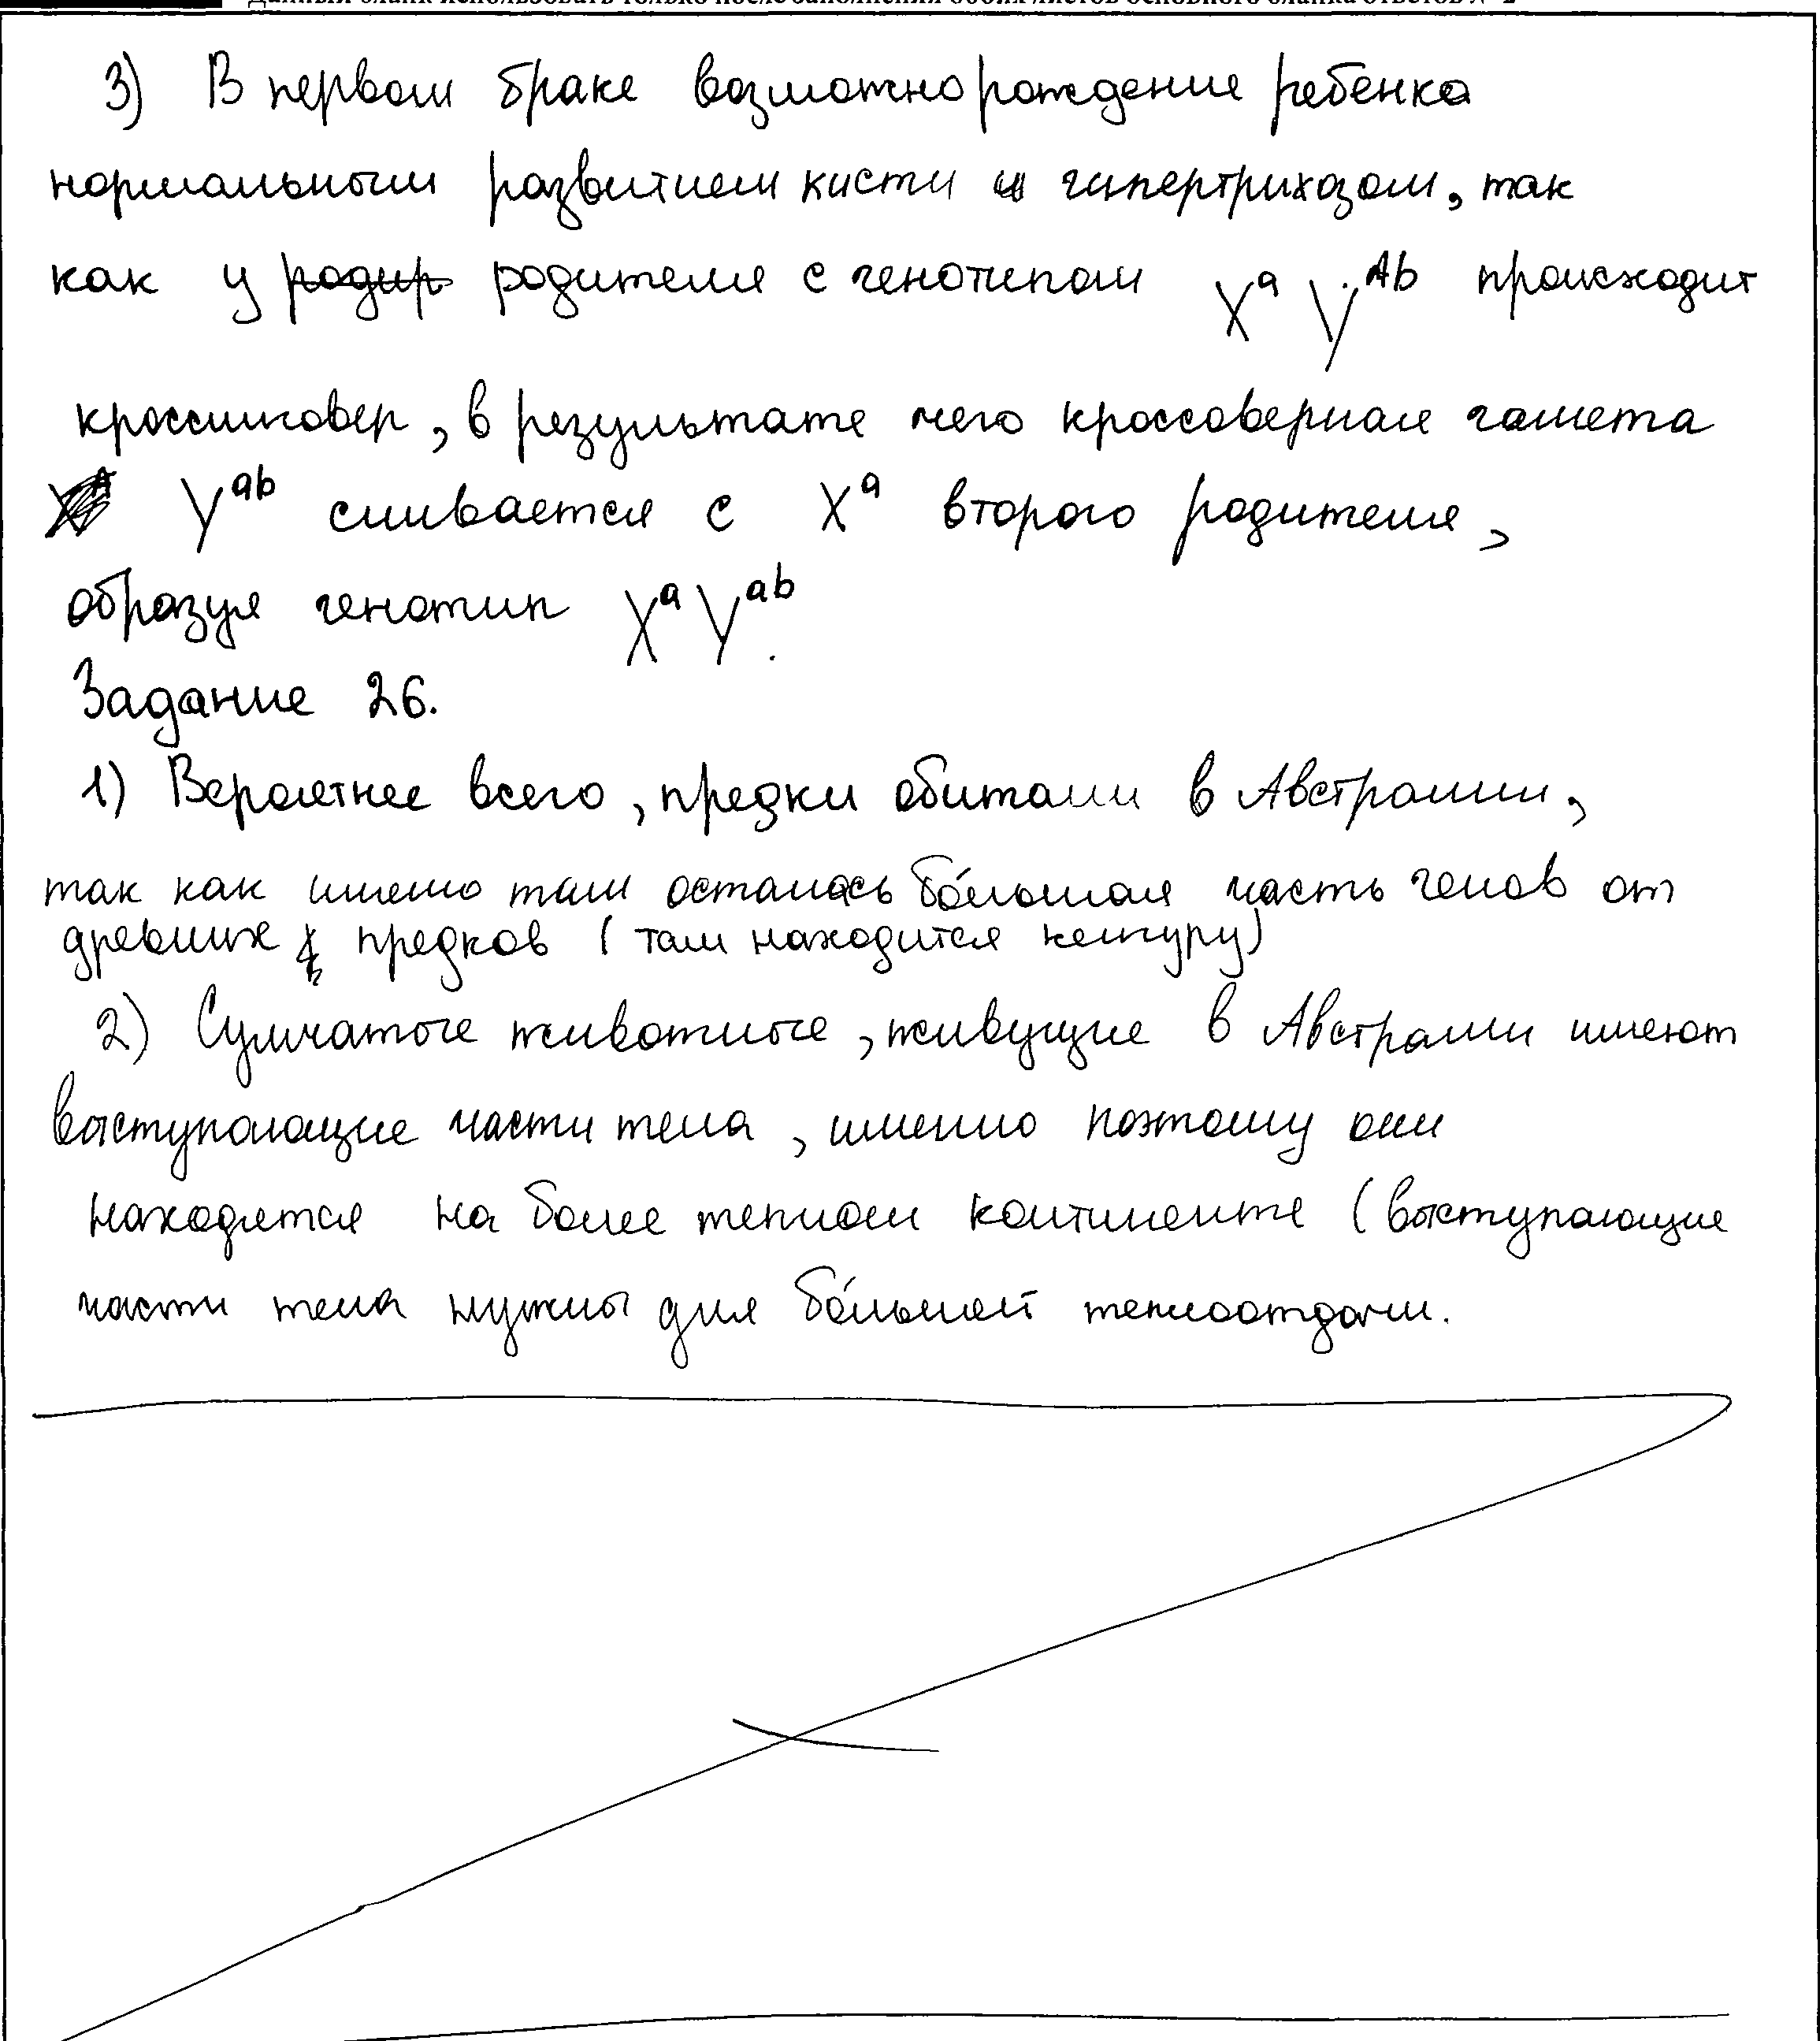 Данный бланк использовать только после заполнения обоих листов основного бланка ответов № 2
3) В первом браке возможно рождение ребенка
нормальным развитием кисти и гипертрихозом, так
как у родир родителя с генотипом XᵃYᴬᵇ происходит
кроссинговер, в результате чего кроссоверная гамета
Yᵃᵇ сливается с Xᵃ второго родителя,
образуя генотип XᵃYᵃᵇ.
Задание 26.
1) Вероятнее всего, предки обитали в Австралии,
так как имено там осталась бо́льшая часть генов от
древних предков (там находится кенгуру)
2) Сумчатые животные, живущие в Австралии имеют
выступающие части тела, именно поэтому они
находятся на более теплом континенте (выступающие
части тела нужны для бо́льшей теплоотдачи.